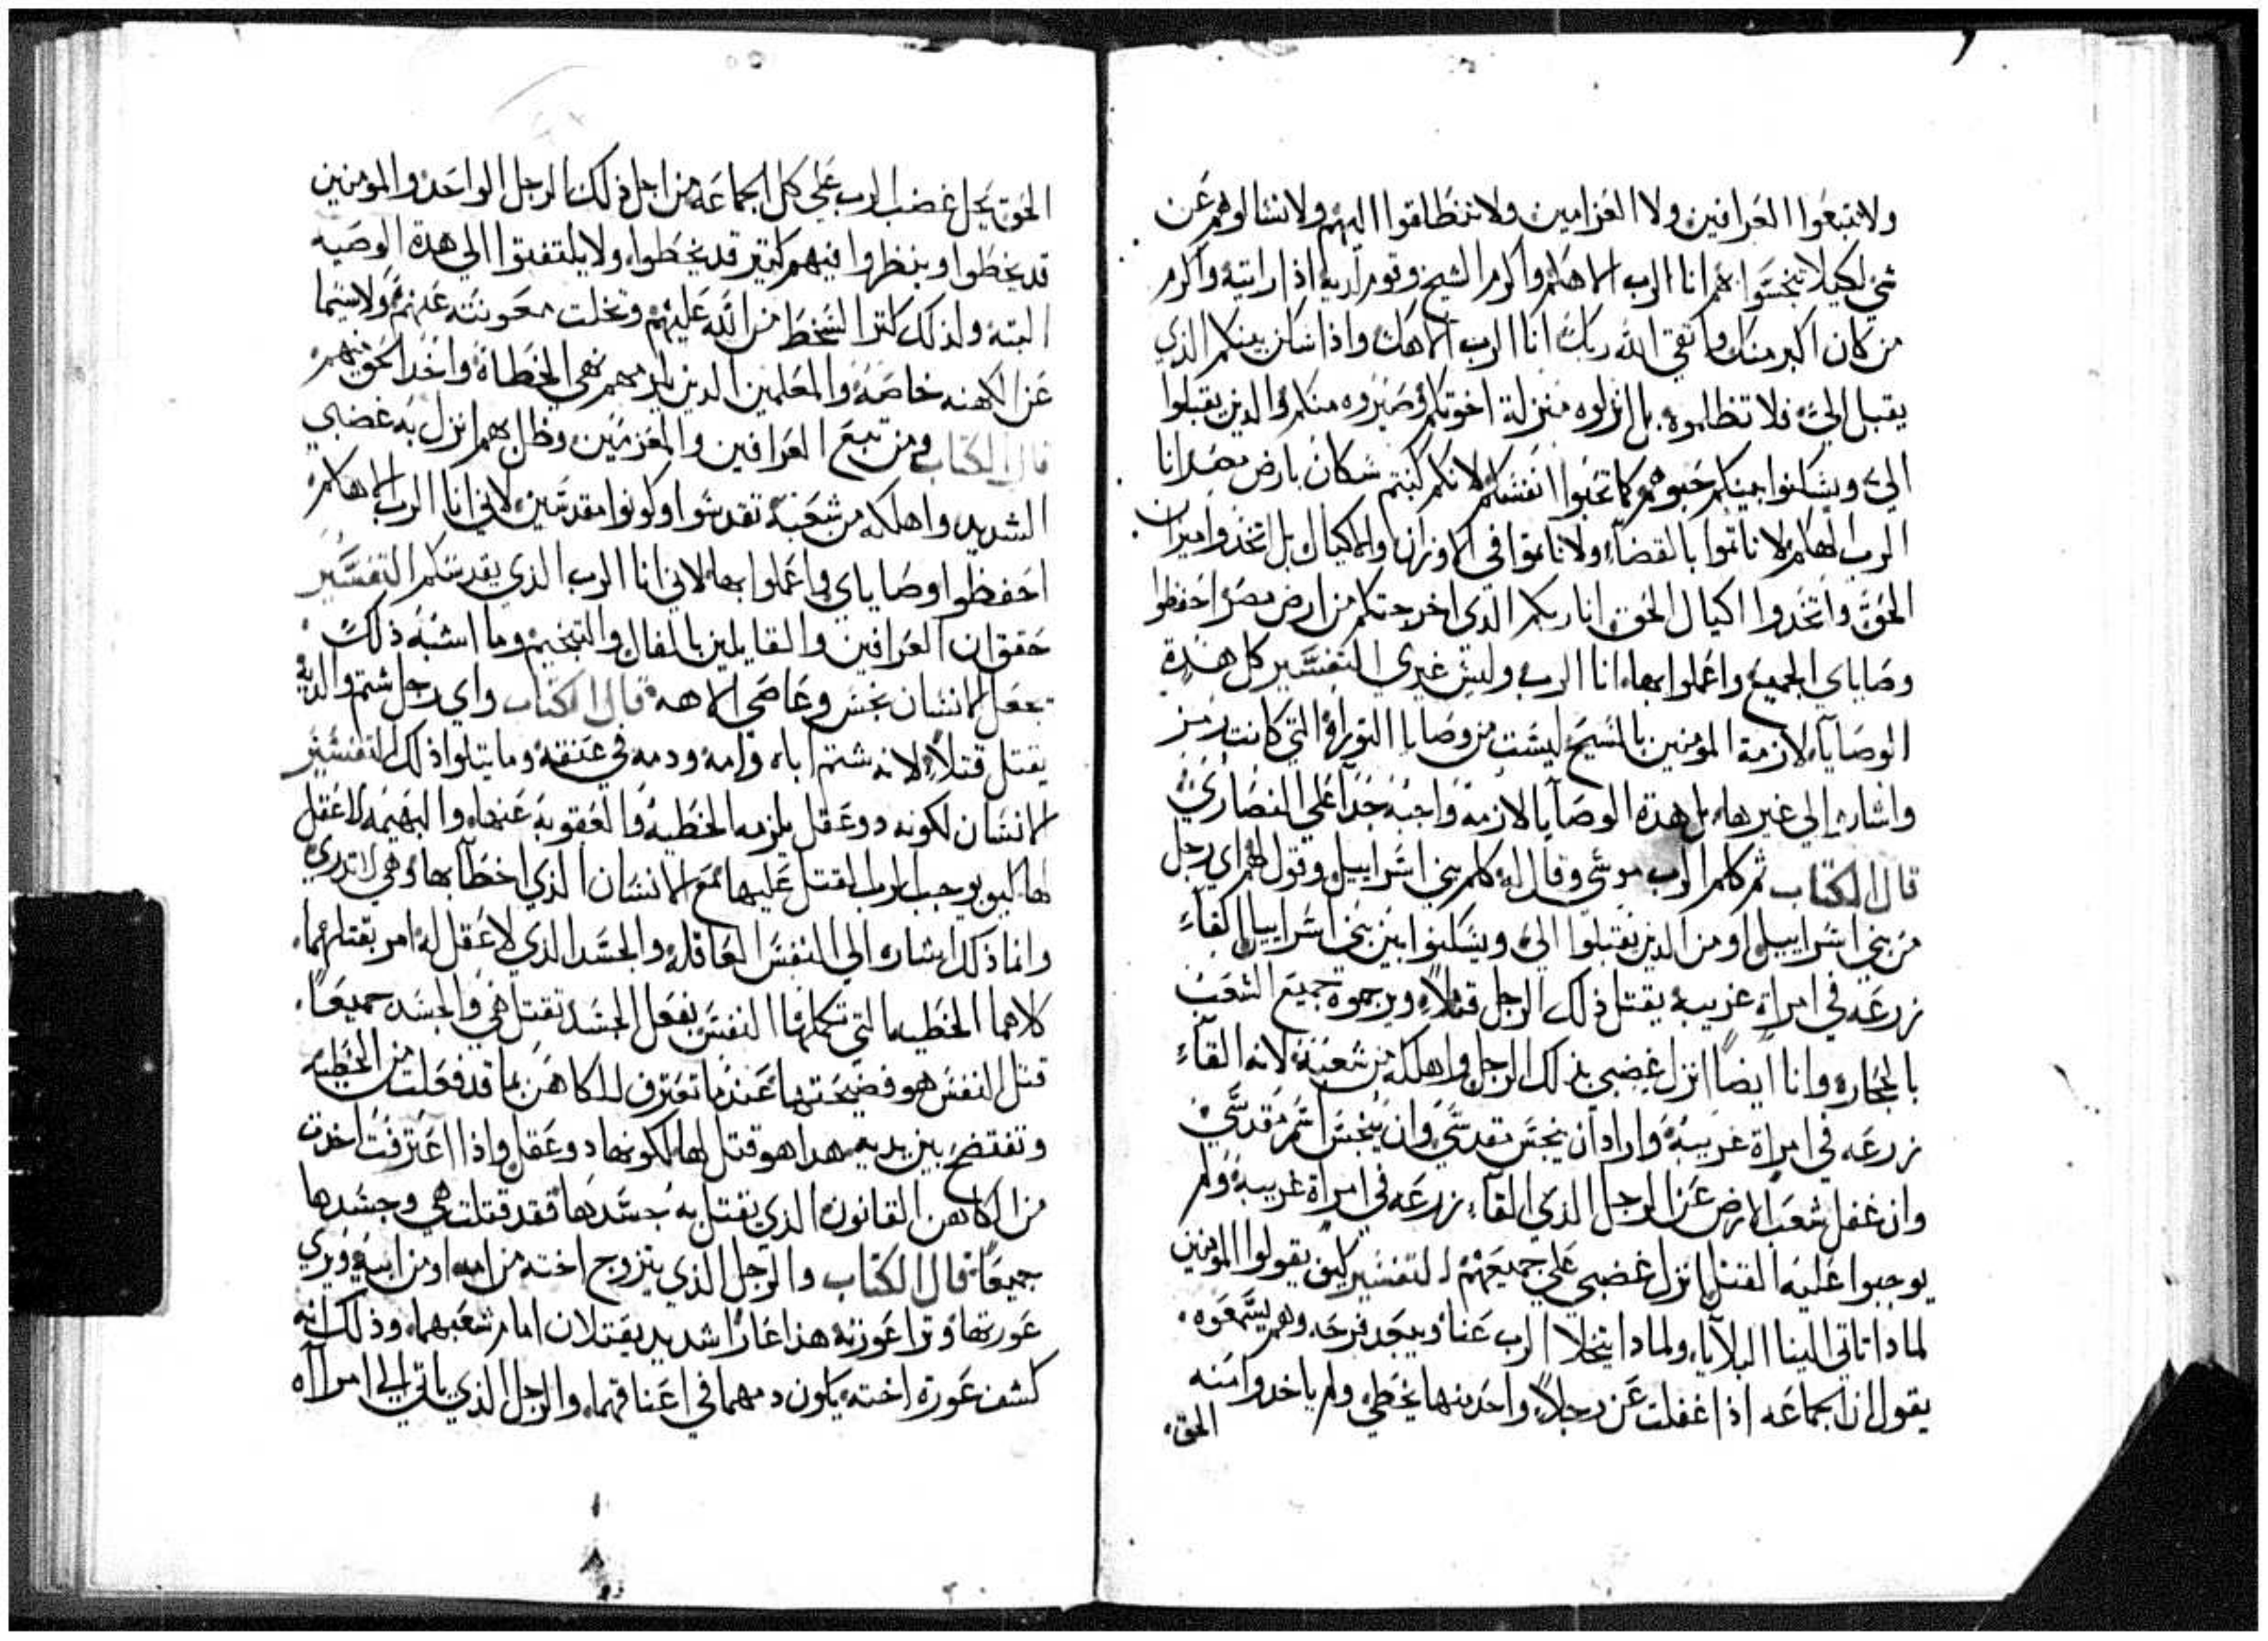 ولا تتبعوا العرافين ولا العزامين ولا تنطلقوا اليهم ولا تسالوهم عن
شي لكيلا تنجسوا بهم انا الرب الاهكم واكرم الشيخ وقوم لديه اذا رايته واكرم
من كان اكبر منك واتقي الله ربك انا الرب الاهك واذا سكن بينكم الذي
يقبل اليّ فلا تظلموه بل انزلوه منزلة اخوتكم وصيروه منكم والذين يقبلوا
اليّ ويسكنوا بينكم حبوهم كما تحبوا انفسكم لانكم كنتم سكان بارض مصر انا
الرب الهكم لا تاثموا بالقضاء ولا تاثموا في الاوزان والمكيال بل اتخذوا ميزان
الحق واتخدوا اكيال الحق انا ربكم الذي اخرجتكم من ارض مصر احفظوا
وصاياي الجميع واعملوا بها انا الرب وليس غيري التفسير كل هذه
الوصايا لازمة المومنين بالمسيح ليست من وصايا التوراة التي كانت رمز
واشاره الي غيرها بل هدة الوصايا لازمة واجبه جدا علي النصاري
قال الكتاب ثم كلم الرب موسي وقال له كلم بني اسراييل وقول لهم اي رجل
من بني اسراييل او من الدين يقبلوا اليّ ويسكنوا بين بني اسراييل القاء
زرعه في امراة غريبة يقتل ذلك الرجل قتلاً ويرجموه جميع الشعب
بالحجاره وانا ايضاً انزل غضبي بذلك الرجل واهلكه من شعبه لانه القاء
زرعه في امراة غريبة واراد ان ينجس مقدسي وان ينجس اسم مقدسي
وان غفل شعب الارض عن الرجل الذي القاء زرعه في امراة غريبة ولم
يوجبوا عليه القتل انزل غضبي علي جميعهم التفسير كيف يقولوا المومنين
لمادا تاتي الينا البلايا ولمادا يتخلا الرب عنا ويبعد فرحه وهم يسمعوه
يقول ان الجماعه اذا غفلت عن رجلاً واحد منها يخطي ولم ياخدوا منه
الحق
الحق يحل غضب الرب علي كل الجماعه من اجل ذلك الرجل الواحد والمومنين
قد يخطوا وينظروا فيهم كتير قد يخطوا ولا يلتفتوا الي هدة الوصيه
البته ولذلك كتر السخط من الله عليهم وتخلت معونته عنهم ولا سيما
عن الكهنه خاصة والمعلمين الدين يلزمهم نهي الخطاة واخد الحق منهم
قال الكتاب ومن تبع العرافين والمعزمين وظل بهم انزل به غضبي
الشديد واهلكه من شعبه تقدسوا وكونوا مقدسين لاني انا الرب الاهكم
احفظوا وصاياي واعملوا بها لاني انا الرب الذي يقدسكم التفسير
حقق ان العرافين والقايلين بالفال والتنجيم وما اشبه ذلك
تجعل الانسان نجس وعاصي الاهه قال الكتاب واي رجل شتم والديه
يقتل قتلاً لانه شتم اباه وامه ودمه في عنقه وما يتلوا ذلك التفسير
الانسان لكونه دو عقل يلزمه الخطية والعقوبه عنها والبهيمه لا عقل
لها كيف يوجب الرب القتل عليها مع الانسان الذي اخطا بها وهي لا تدري
وانما ذلك اشاره الي النفس العاقله والجسد الذي لا عقل له امر بقتلهما
كلاهما الخطيه التي تكملها النفس بفعل الجسد تقتل هي والجسد جميعاً
قتل النفس هو فضيحتها عندما تعترف للكاهن بما قد فعلت من الخطيه
وتفتضح بين يديه هدا هو قتل لها لكونها دو عقل واذا اعترفت اخدت
من الكاهن القانون الذي تقتل به جسدها فقد قتلت هي وجسدها
جميعاً قال الكتاب والرجل الذي يتزوج اخته من امه او من ابيه ويري
عورتها وترا عورته هذا عارا شديد يقتلان امام شعبهما وذلك انه
كشف عورة اخته يكون دمهما في اعناقهما والرجل الذي ياتي الي امراه